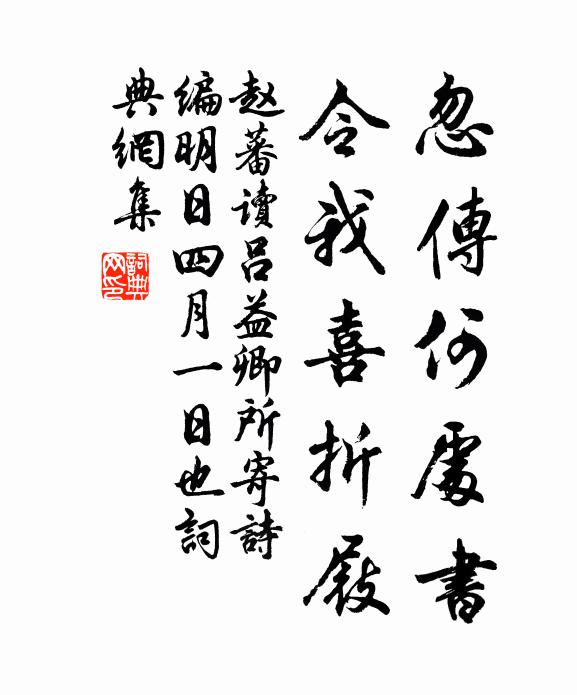 忽傳何處書
令我喜折屐
赵蕃讀吕益卿所寄詩
編明日四月一日也詞
典網集
詞典网印